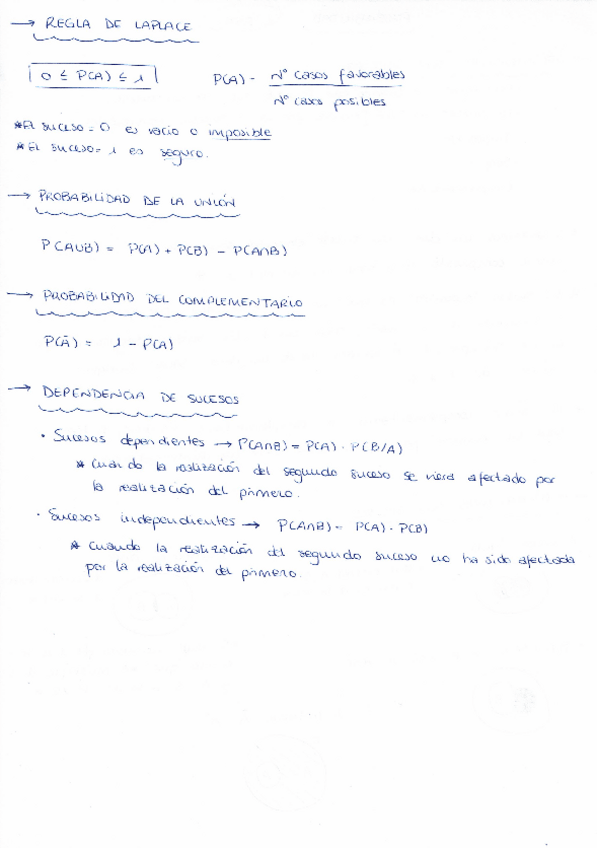 → REGLA DE LAPLACE
0 ≤ P(A) ≤ 1
P(A) = Nº casos favorables / Nº casos posibles
* El suceso = 0 es vacío o imposible
* El suceso = 1 es seguro.
→ PROBABILIDAD DE LA UNIÓN
P(A∪B) = P(A) + P(B) - P(A∩B)
→ PROBABILIDAD DEL COMPLEMENTARIO
P(Ā) = 1 - P(A)
→ DEPENDENCIA DE SUCESOS
• Sucesos dependientes → P(A∩B) = P(A) · P(B/A)
* Cuando la realización del segundo suceso se viera afectado por
la realización del primero.
• Sucesos independientes → P(A∩B) = P(A) · P(B)
* Cuando la realización del segundo suceso no ha sido afectada
por la realización del primero.